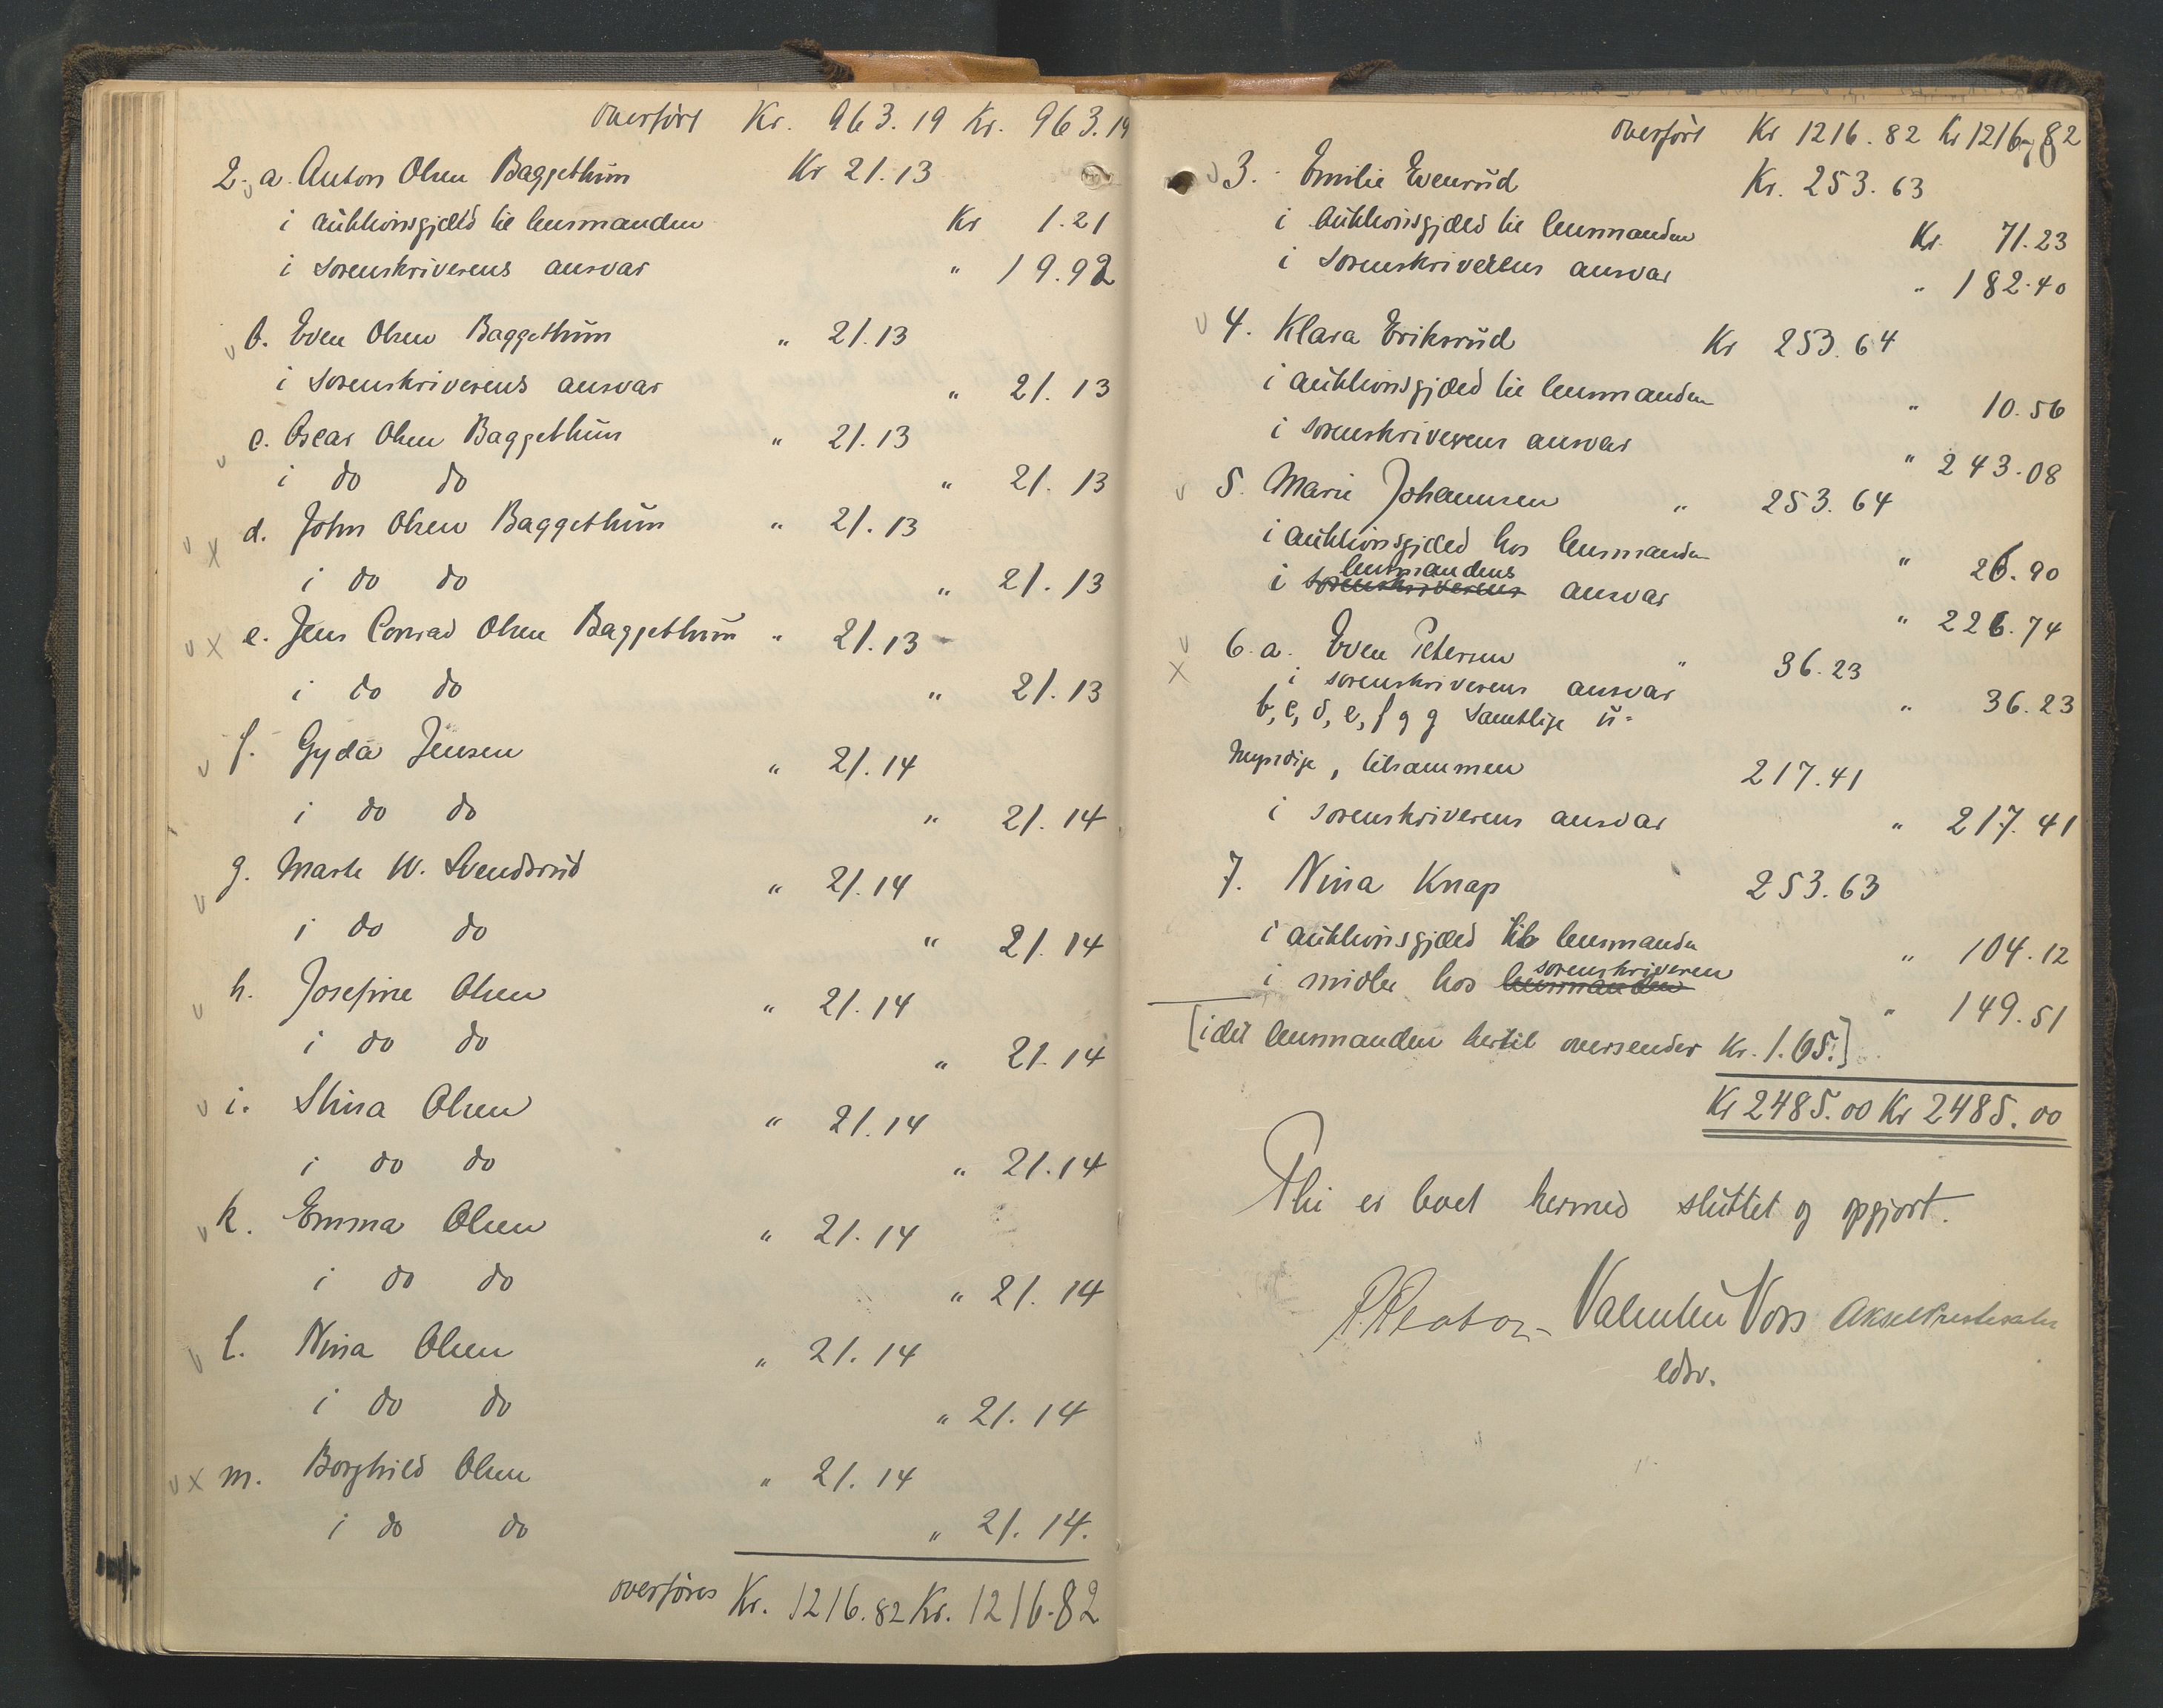 overført Kr. 963.19 Kr. 963.19
2. a. Anton Olsen Baggethun Kr 21.13
i auktionsgjæld til lensmanden Kr 1.21
i sorenskriverens ansvar " 19.92
b. Even Olsen Baggethun " 21.13
i sorenskriverens ansvar " 21.13
c. Oscar Olsen Baggethun " 21.13
i do do " 21.13
d. John Olsen Baggethun " 21.13
i do do " 21.13
e. Jens Conrad Olsen Baggethun " 21.13
i do do " 21.13
f. Gyda Jensen " 21.14
i do do " 21.14
g. Marte W. Svendsrud " 21.14
i do do " 21.14
h. Josefine Olsen " 21.14
i do do " 21.14
i. Stina Olsen " 21.14
i do do " 21.14
k. Emma Olsen " 21.14
i do do " 21.14
l. Nina Olsen " 21.14
i do do " 21.14
m. Borghild Olsen " 21.14
i do do " 21.14.
overføres Kr. 1216.82 Kr. 1216.82
overført Kr 1216.82 Kr 1216.82
3. Emilie Evenrud Kr. 253.63
i auktionsgjæld til lensmanden Kr. 71.23
i sorenskriverens ansvar " 182.40
4. Klara Eriksrud Kr 253.64
i auktionsgjæld til lensmanden " 10.56
i sorenskriverens ansvar " 243.08
5. Marie Johannsen " 253.64
i auktionsgjæld hos lensmanden " 26.90
lensmandens
i sorenskriverens ansvar " 226.74
6. a. Even Petersen " 36.23
i sorenskriverens ansvar " 36.23
b, c, d, e, f og g samtlige u-
myndige, tilsammen 217.41
i sorenskriverens ansvar " 217.41
7. Nina Knap 253.63
i auktionsgjæld til lensmanden " 104.12
sorenskriveren
i midler hos lensmanden " 149.51
[idet lensmanden hertil oversender Kr. 1.65.]
Kr 2485.00 Kr 2485.00
Thi er boet hermed sluttet og opgjort.
Valentin Voss Aksel
edsv.